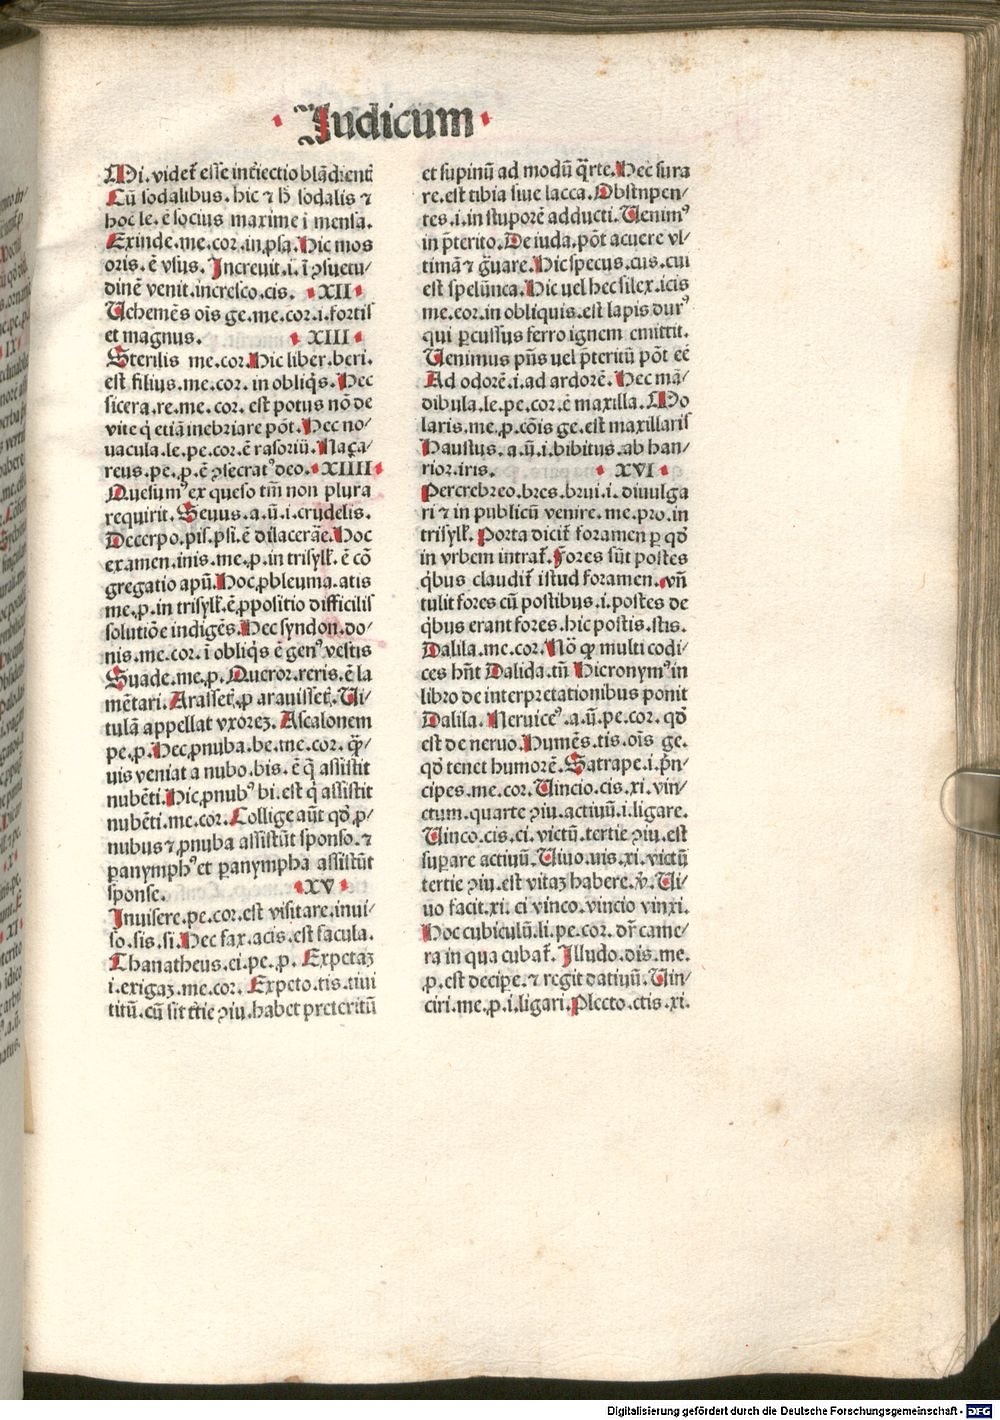 Judicum
Mi. videt᷑ esse int̃iectio blãdient̃
Cũ sodalibus. hic ⁊ h̃ sodalis ⁊
hoc le. ẽ socius maxime ĩ mensa.
Exinde. me. cor. in. p̱sa. Hic mos
oris. ẽ vsus. Increuit. i. ĩ ꝯsuetu/
dinẽ venit. incresco. cis. XII
Uehemẽs oĩs ge. me. cor. i. fortis
et magnus. XIII
Sterilis me. cor. Hic liber. beri.
est filius. me. cor. in obliq̃s. Hec
sicera. re. me. cor. est potus nõ de
vite q̃ etiã inebriare põt. Hec no/
uacula. le. pe. cor. ẽ rasoriũ. Naça/
reus. pe. p. ẽ ꝯsecratꝰ deo. XIIII
Quesumꝰ ex queso tm̃ non plura
requirit. Seuus. a. ũ. i. crudelis.
Decerpo. pis. psi. ẽ dilacerãe. Hoc
examen. inis. me. p. in trisyll᷑. ẽ cõ
gregatio apũ. Hoc ꝓbleuma. atis
me. p. in trisyll᷑. ẽ ꝓpositio difficilis
solutiõe indigẽs. Hec syndon. do/
nis. me. cor. ĩ obliq̃s ẽ genꝰ vestis
Suade. me. p. Queror. reris. ẽ la
mẽtari. Arassetꝭ. p arauissetꝭ. Ui/
tulã appellat vxoreꝫ. Ascalonem
pe. p. Hec ꝓnuba. be. me. cor. q̃/
uis veniat a nubo. bis. ẽ q̃ assistit
nubẽti. Hic ꝓnubꝰ bi. est q̃ assistit
nubẽti. me. cor. Collige aũt qđ ꝓ/
nubus ⁊ ꝓnuba assistũt sponso. ⁊
ꝑanymphꝰ et ꝑanympha assistũt
sponse. XV
Inuisere. pe. cor. est visitare. inui/
so. sis. si. Hec fax. acis. est facula.
Thanatheus. ci. pe. p. Expetaꝫ
i. exigaꝫ. me. cor. Expeto. tis. tiui
titũ. cũ sit t̃tie ꝯiu. habet preteritũ
et supinũ ad modũ q̃rte. Hec sura
re. est tibia siue lacca. Obstupen/
tes. i. in stuporẽ adducti. Uenimꝰ
in p̃terito. De iuda. põt acuere vl/
timã ⁊ g̃uare. Hic specus. cus. cui
est spelũnca. Hic uel hec silex. icis
me. cor. in obliquis. est lapis durꝰ
qui ꝑcussus ferro ignem emittit.
Uenimus pñs uel p̃teritũ põt eẽ
Ad odorẽ. i. ad ardorẽ. Hec mã/
dibula. le. pe. cor. ẽ maxilla. Mo
laris. me. p. cõis ge. est maxillaris
Haustus. a. ũ. i. bibitus. ab hau/
rior. iris. XVI
Percrebreo. bres. brui. i. diuulga
ri ⁊ in publicũ venire. me. pro. in
trisyll᷑. Porta dicit᷑ foramen ꝑ qđ
in vrbem intrat᷑. Fores sũt postes
q̃bus claudit᷑ istud foramen. vñ
tulit fores cũ postibus. i. postes de
q̃bus erant fores. hic postis. stis.
Dalila. me. cor. Nõ ꝙ multi codi/
ces hñt Dalida. tñ Hieronymꝰ in
libro de interpretationibus ponit
Dalila. Neruiceꝰ. a. ũ. pe. cor. qđ
est de neruo. Humẽs. tis. oĩs ge.
qđ tenet humorẽ. Satrape. i. p̃n/
cipes. me. cor. Uincio. cis. xi. vin/
ctum. quarte ꝯiu. actiuũ. i. ligare.
Uinco. cis. ci. victũ. tertie ꝯiu. est
suꝑare actiuũ. Uiuo. uis. xi. victũ
tertie ꝯiu. est vitaꝫ habere. ꝟ. Ui/
uo facit. xi. ci vinco. vincio vinxi.
Hoc cubiculũ. li. pe. cor. dr̃ came/
ra in qua cubat᷑. Illudo. dis. me.
p. est deciꝑe. ⁊ regit datiuũ. Uin/
ciri. me. p. i. ligari. Plecto. ctis. xi.
Digitalisierung gefördert durch die Deutsche Forschungsgemeinschaft - DFG